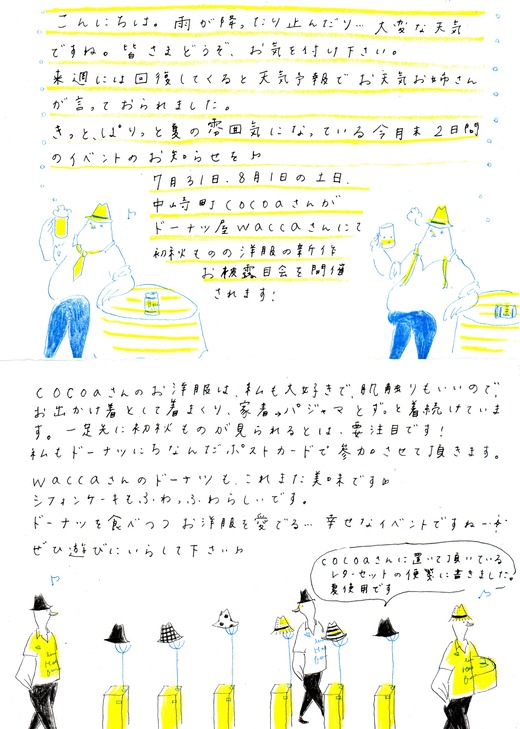 こんにちは。雨が降ったり止んだり…大変な天気
ですね。皆さまどうぞ、お気を付け下さい。
来週には回復してくると天気予報でお天気お姉さん
が言っておられました。
きっと、ぱりっと夏の雰囲気になっている今月末2日間
のイベントのお知らせを♪
7月31日、8月1日の土日、
中崎町cocoaさんが
ドーナツ屋waccaさんにて
初秋ものの洋服の新作
お披露目会を開催
されます!
cocoaさんのお洋服は、私も大好きで、肌触りもいいので、
お出かけ着として着まくり、家着→パジャマとずっと着続けていま
す。一足先に初秋ものが見られるとは、要注目です!
私もドーナツにちなんだポストカードで参加させて頂きます。
waccaさんのドーナツも、これまた美味です
シフォンケーキもふわっふわらしいです。
ドーナツを食べつつお洋服を愛でる…幸せなイベントですねー
ぜひ遊びにいらして下さい♪
cocoaさんに置いて頂いている
レターセットの便箋に書きました。
夏使用です